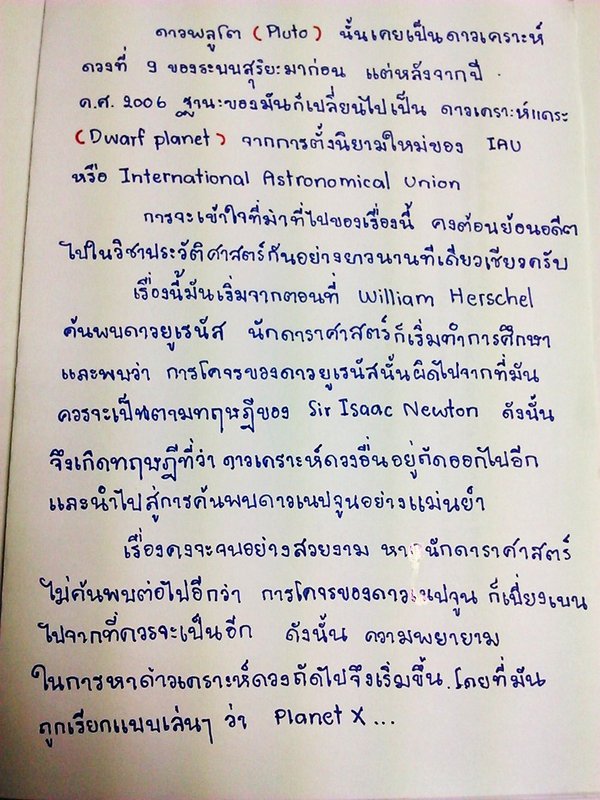 ดาวพลูโต (Pluto) นั้นเคยเป็นดาวเคราะห์
ดวงที่ 9 ของระบบสุริยะมาก่อน แต่หลังจากปี
ค.ศ. 2006 ฐานะของมันก็เปลี่ยนไปเป็น ดาวเคราะห์แคระ
(Dwarf planet) จากการตั้งนิยามใหม่ของ IAU
หรือ International Astronomical Union
การจะเข้าใจที่มาที่ไปของเรื่องนี้ คงต้อนย้อนอดีต
ไปในวิชาประวัติศาสตร์กันอย่างยาวนานทีเดียวเชียวครับ
เรื่องนี้มันเริ่มจากตอนที่ William Herschel
ค้นพบดาวยูเรนัส นักดาราศาสตร์ก็เริ่มทำการศึกษา
และพบว่า การโคจรของดาวยูเรนัสนั้นผิดไปจากที่มัน
ควรจะเป็นตามทฤษฎีของ Sir Isaac Newton ดังนั้น
จึงเกิดทฤษฎีที่ว่า ดาวเคราะห์ดวงอื่นอยู่ถัดออกไปอีก
และนำไปสู่การค้นพบดาวเนปจูนอย่างแม่นยำ
เรื่องคงจะจบอย่างสวยงาม หากนักดาราศาสตร์
ไม่ค้นพบต่อไปอีกว่า การโคจรของดาวเนปจูน ก็เบี่ยงเบน
ไปจากที่ควรจะเป็นอีก ดังนั้น ความพยายาม
ในการหาดาวเคราะห์ดวงถัดไปจึงเริ่มขึ้น. โดยที่มัน
ถูกเรียกแบบเล่นๆ ว่า Planet X...